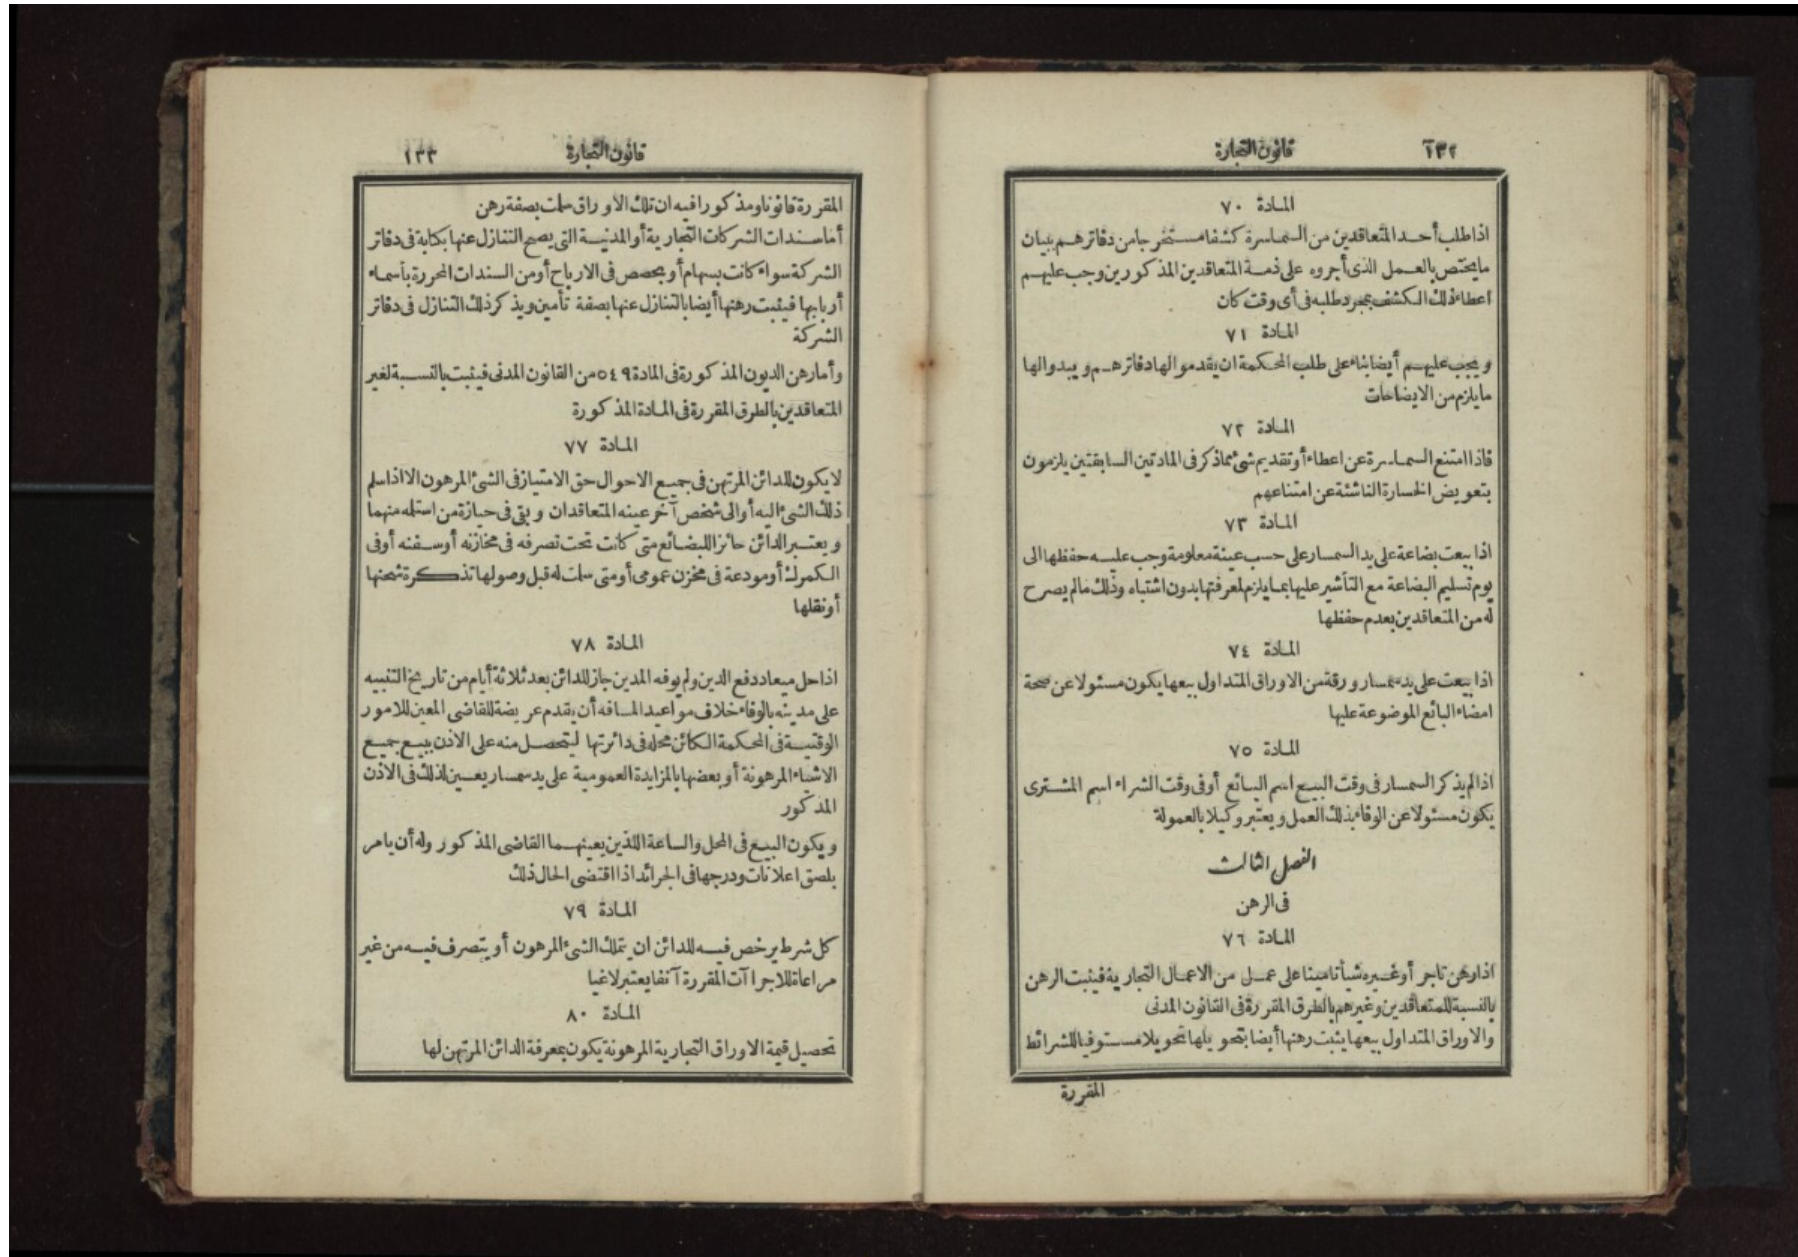 ١٣٢
قانون التجارة
المادة ٧٠
اذا طلب أحد المتعاقدين من السماسرة كشفا مستخرجا من دفاترهم ببيان
ما يختص بالعمل الذى أجروه على ذمة المتعاقدين المذكورين وجب عليهم
اعطاء ذلك الكشف بمجرد طلبه فى أى وقت كان
المادة ٧١
ويجب عليهم أيضا بناء على طلب المحكمة ان يقدموا لها دفاترهم ويبدوا لها
ما يلزم من الايضاحات
المادة ٧٢
فاذا امتنع السماسرة عن اعطاء أو تقديم شئ مما ذكر فى المادتين السابقتين يلزمون
بتعويض الخسارة الناشئة عن امتناعهم
المادة ٧٣
اذا بيعت بضاعة على يد السمسار على حسب عينة معلومة وجب عليه حفظها الى
يوم تسليم البضاعة مع التأشير عليها بما يلزم لمعرفتها بدون اشتباه وذلك مالم يصرح
له من المتعاقدين بعدم حفظها
المادة ٧٤
اذا بيعت على يد سمسار ورقة من الاوراق المتداول بيعها يكون مسئولا عن صحة
امضاء البائع الموضوعة عليها
المادة ٧٥
اذا لم يذكر السمسار فى وقت البيع اسم البائع أو فى وقت الشراء اسم المشترى
يكون مسئولا عن الوفاء بذلك العمل ويعتبر وكيلا بالعمولة
الفصل الثالث
فى الرهن
المادة ٧٦
اذا رهن تاجر أو غيره شيأ تامينا على عمل من الاعمال التجارية فيثبت الرهن
بالنسبة للمتعاقدين وغيرهم بالطرق المقررة فى القانون المدنى
والاوراق المتداول بيعها يثبت رهنها أيضا بتحويلها تحويلا مستوفيا للشرائط
المقررة
قانون التجارة
١٣٣
المقررة قانونا ومذكورا فيه ان تلك الاوراق سلمت بصفة رهن
أما سندات الشركات التجارية أو المدنية التى يصح التنازل عنها بكتابة فى دفاتر
الشركة سواء كانت بسهام أو بحصص فى الارباح أو من السندات المحررة بأسماء
أربابها فيثبت رهنها أيضا بالتنازل عنها بصفة تأمين ويذكر ذلك التنازل فى دفاتر
الشركة
وأما رهن الديون المذكورة فى المادة ٥٤٩ من القانون المدنى فيثبت بالنسبة لغير
المتعاقدين بالطرق المقررة فى المادة المذكورة
المادة ٧٧
لا يكون للدائن المرتهن فى جميع الاحوال حق الامتياز فى الشئ المرهون الا اذا سلم
ذلك الشئ اليه أو الى شخص آخر عينه المتعاقدان وبقى فى حيازة من استلمه منهما
ويعتبر الدائن حائزا للبضائع متى كانت تحت تصرفه فى مخازنه أو سفنه أو فى
الكمرك أو مودعة فى مخزن عمومى أو متى سلمت له قبل وصولها تذكرة شحنها
أو نقلها
المادة ٧٨
اذا حل ميعاد دفع الدين ولم يوفه المدين جاز للدائن بعد ثلاثة أيام من تاريخ التنبيه
على مدينه بالوفاء خلاف مواعيد المسافه أن يقدم عريضة للقاضى المعين للامور
الوقتية فى المحكمة الكائن محله فى دائرتها ليتحصل منه على الاذن ببيع جميع
الاشياء المرهونة أو بعضها بالمزايدة العمومية على يد سمسار يعين لذلك فى الاذن
المذكور
ويكون البيع فى المحل والساعة اللذين يعينهما القاضى المذكور وله أن يامر
بلصق اعلانات ودرجها فى الجرائد اذا اقتضى الحال ذلك
المادة ٧٩
كل شرط يرخص فيه للدائن ان يتملك الشئ المرهون أو يتصرف فيه من غير
مراعاة للاجراآت المقررة آنفا يعتبر لاغيا
المادة ٨٠
تحصيل قيمة الاوراق التجارية المرهونة يكون بمعرفة الدائن المرتهن لها